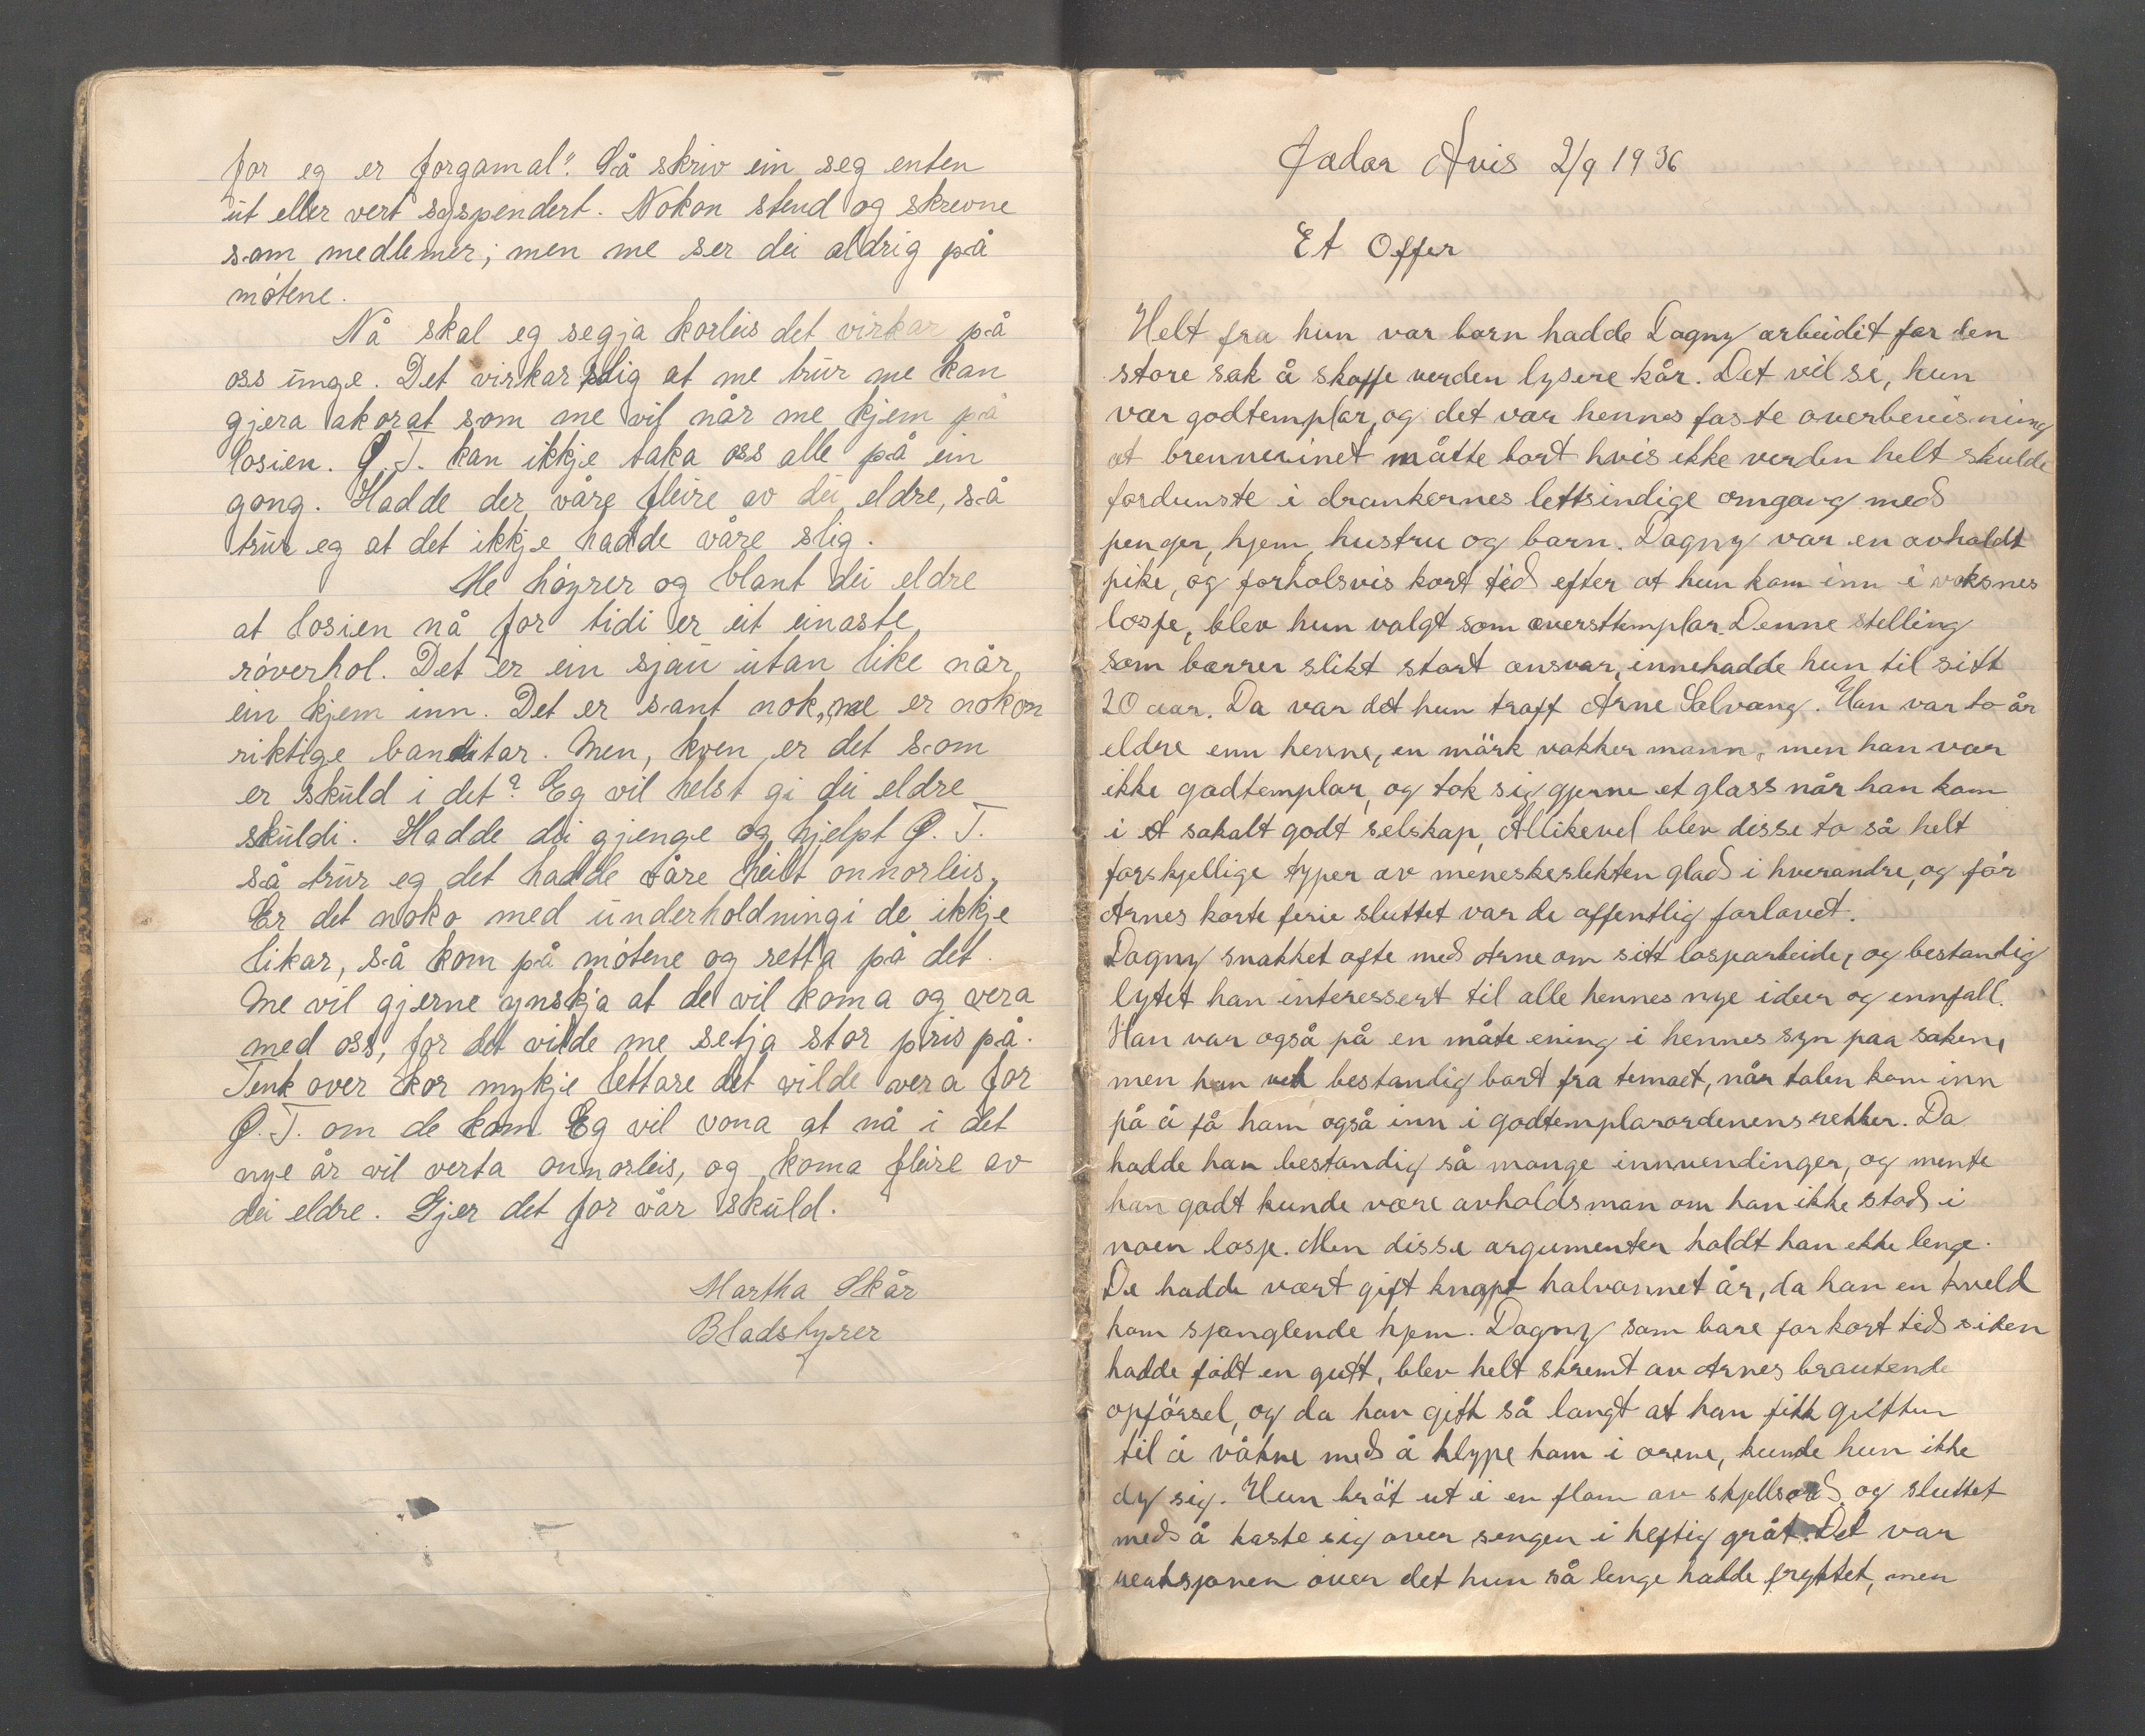 for eg er forgamal". Så skriv ein seg enten
ut eller vert syspendert. Nokon stend og skrevne
som medlemer; men me ser dei aldrig på
møtene.
Nå skal eg segja korleis det virkar på
oss unge. Det virkar slig at me trur me kan
gjera akorat som me vil når me kjem på
losien. Ø. T. kan ikkje taka oss alle på ein
gong. Hadde der våre fleire av dei eldre, så
trur eg at det ikkje hadde våre slig.
Me høyrer og blant dei eldre
at losien nå for tidi er eit einaste
røverhol. Det er ein sjau utan like når
ein kjem inn. Det er sant nok, me er nokon
riktige banditar. Men, kven er det som
er skuld i det? Eg vil helst gi dei eldre
skuldi. Hadde dei gjenge og hjelpt Ø. T.
så trur eg det hadde våre heilt onnorleis.
Er det noko med underholdningi de ikkje
likar, så kom på møtene og retta på det.
Me vil gjerne ynskja at de vil koma og vera
med oss, for det vilde me setja stor pris på.
Tenk over kor mykje lettare det vilde vera for
Ø. T. om de kom. Eg vil vona at nå i det
nye år vil verta onnorleis, og koma fleire av
dei eldre. Gjer det for vår skuld.
Martha Skår
Bladstyrer
Jadar Avis 2/9 1936
Et Offer
Helt fra hun var barn hadde Dagny arbeidet for den
store sak å skaffe verden lysere kår. Det vil si, hun
var godtemplar, og det var hennes faste overbevisning
at brennevinet måtte bort hvis ikke verden helt skulde
fordunste i drankernes lettsindige omgang med
penger, hjem, hustru og barn. Dagny var en avholdt
pike, og forholsvis kort tid efter at hun kom inn i voksnes
losje, blev hun valgt som oversttemplar. Denne stelling
som bærrer slikt stort ansvar, innehadde hun til sitt
20 aar. Da var det hun traff Arne Solvang. Han var to år
eldre enn henne, en mörk vakker mann, men han var
ikke godtemplar, og tok sig gjerne et glass når han kom
i et sakalt godt selskap, Allikevel blev disse to så helt
forskjellige typer av meneskeslekten glad i hverandre, og för
Arnes korte ferie sluttet var de offentlig forlovet.
Dagny snakket ofte med Arne om sitt losjearbeide, og bestandig
lytet han interessert til alle hennes nye ideer og innfall.
Han var også på en måte ening i hennes syn paa saken,
men han vek bestandig bort fra temaet, når talen kom inn
på å få ham også inn i godtemplarordenens rekker. Da
hadde han bestandig så mange innvendinger, og mente
han godt kunde være avholdsman om han ikke stod i
noen losje. Men disse argumenter holdt han ikke lenge.
De hadde vært gift knapt halvannet år, da han en kveld
kom sjanglende hjem. Dagny som bare for kort tid siden
hadde född en gutt, blev helt skremt av Arnes brautende
opförsel, og da han gikk så langt at han fikk gutten
til å våkne med å klype ham i ørene, kunde hun ikke
dy sig. Hun bröt ut i en flom av skjellsord og sluttet
med å kaste sig over sengen i heftig gråt. Det var
reaksjonen over det hun så lenge hadde fryktet, men